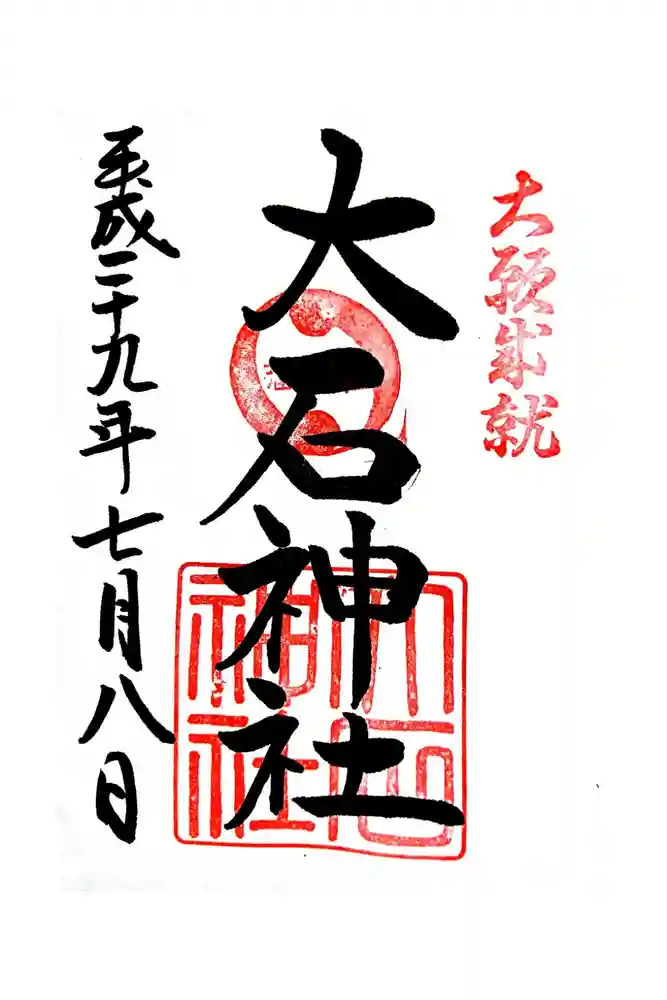 大願成就
大石神社
平成二十九年七月八日
大石
神社